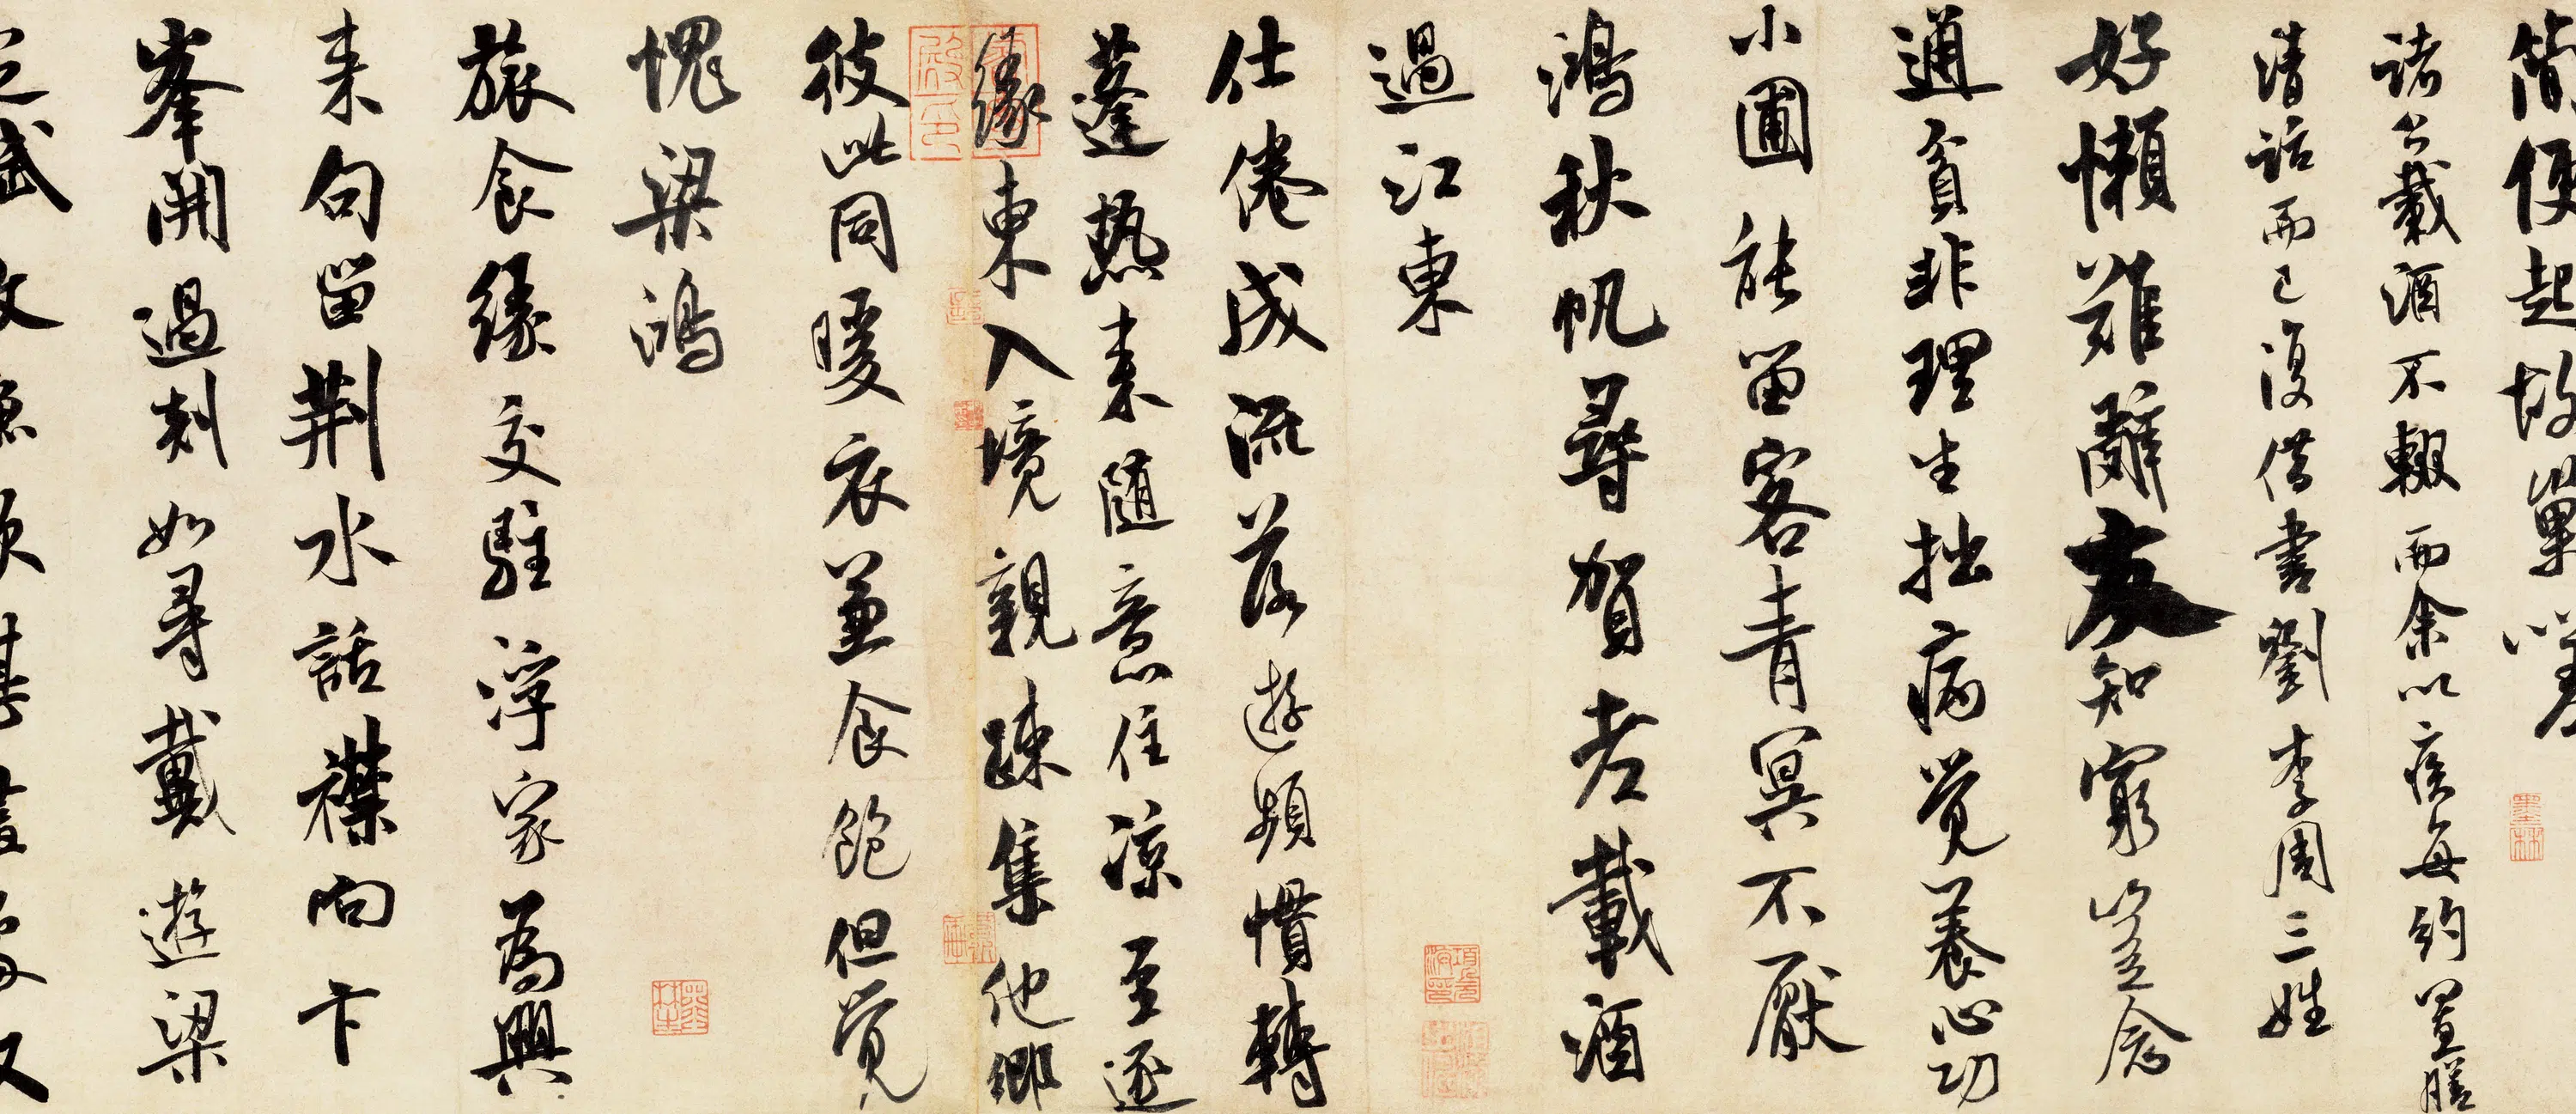 簡便起故巢以
諸公載酒不輟而余以疾每約置膳
清話而已復借書劉李周三姓
好懶難辭友知窮豈念
通貧非理生拙病覺養心功
小圃能留客青冥不厭
鴻秋帆尋賀老載酒
過江東
仕倦成流落遊頻慣轉
蓬熱來隨意住涼至逐
緣東入境親疎集他鄉
彼此同暖衣兼食飽但覺
愧梁鴻
旅食緣交駐浮家為興
來句留荊水話襟向卞
峯開過剡如尋戴遊梁